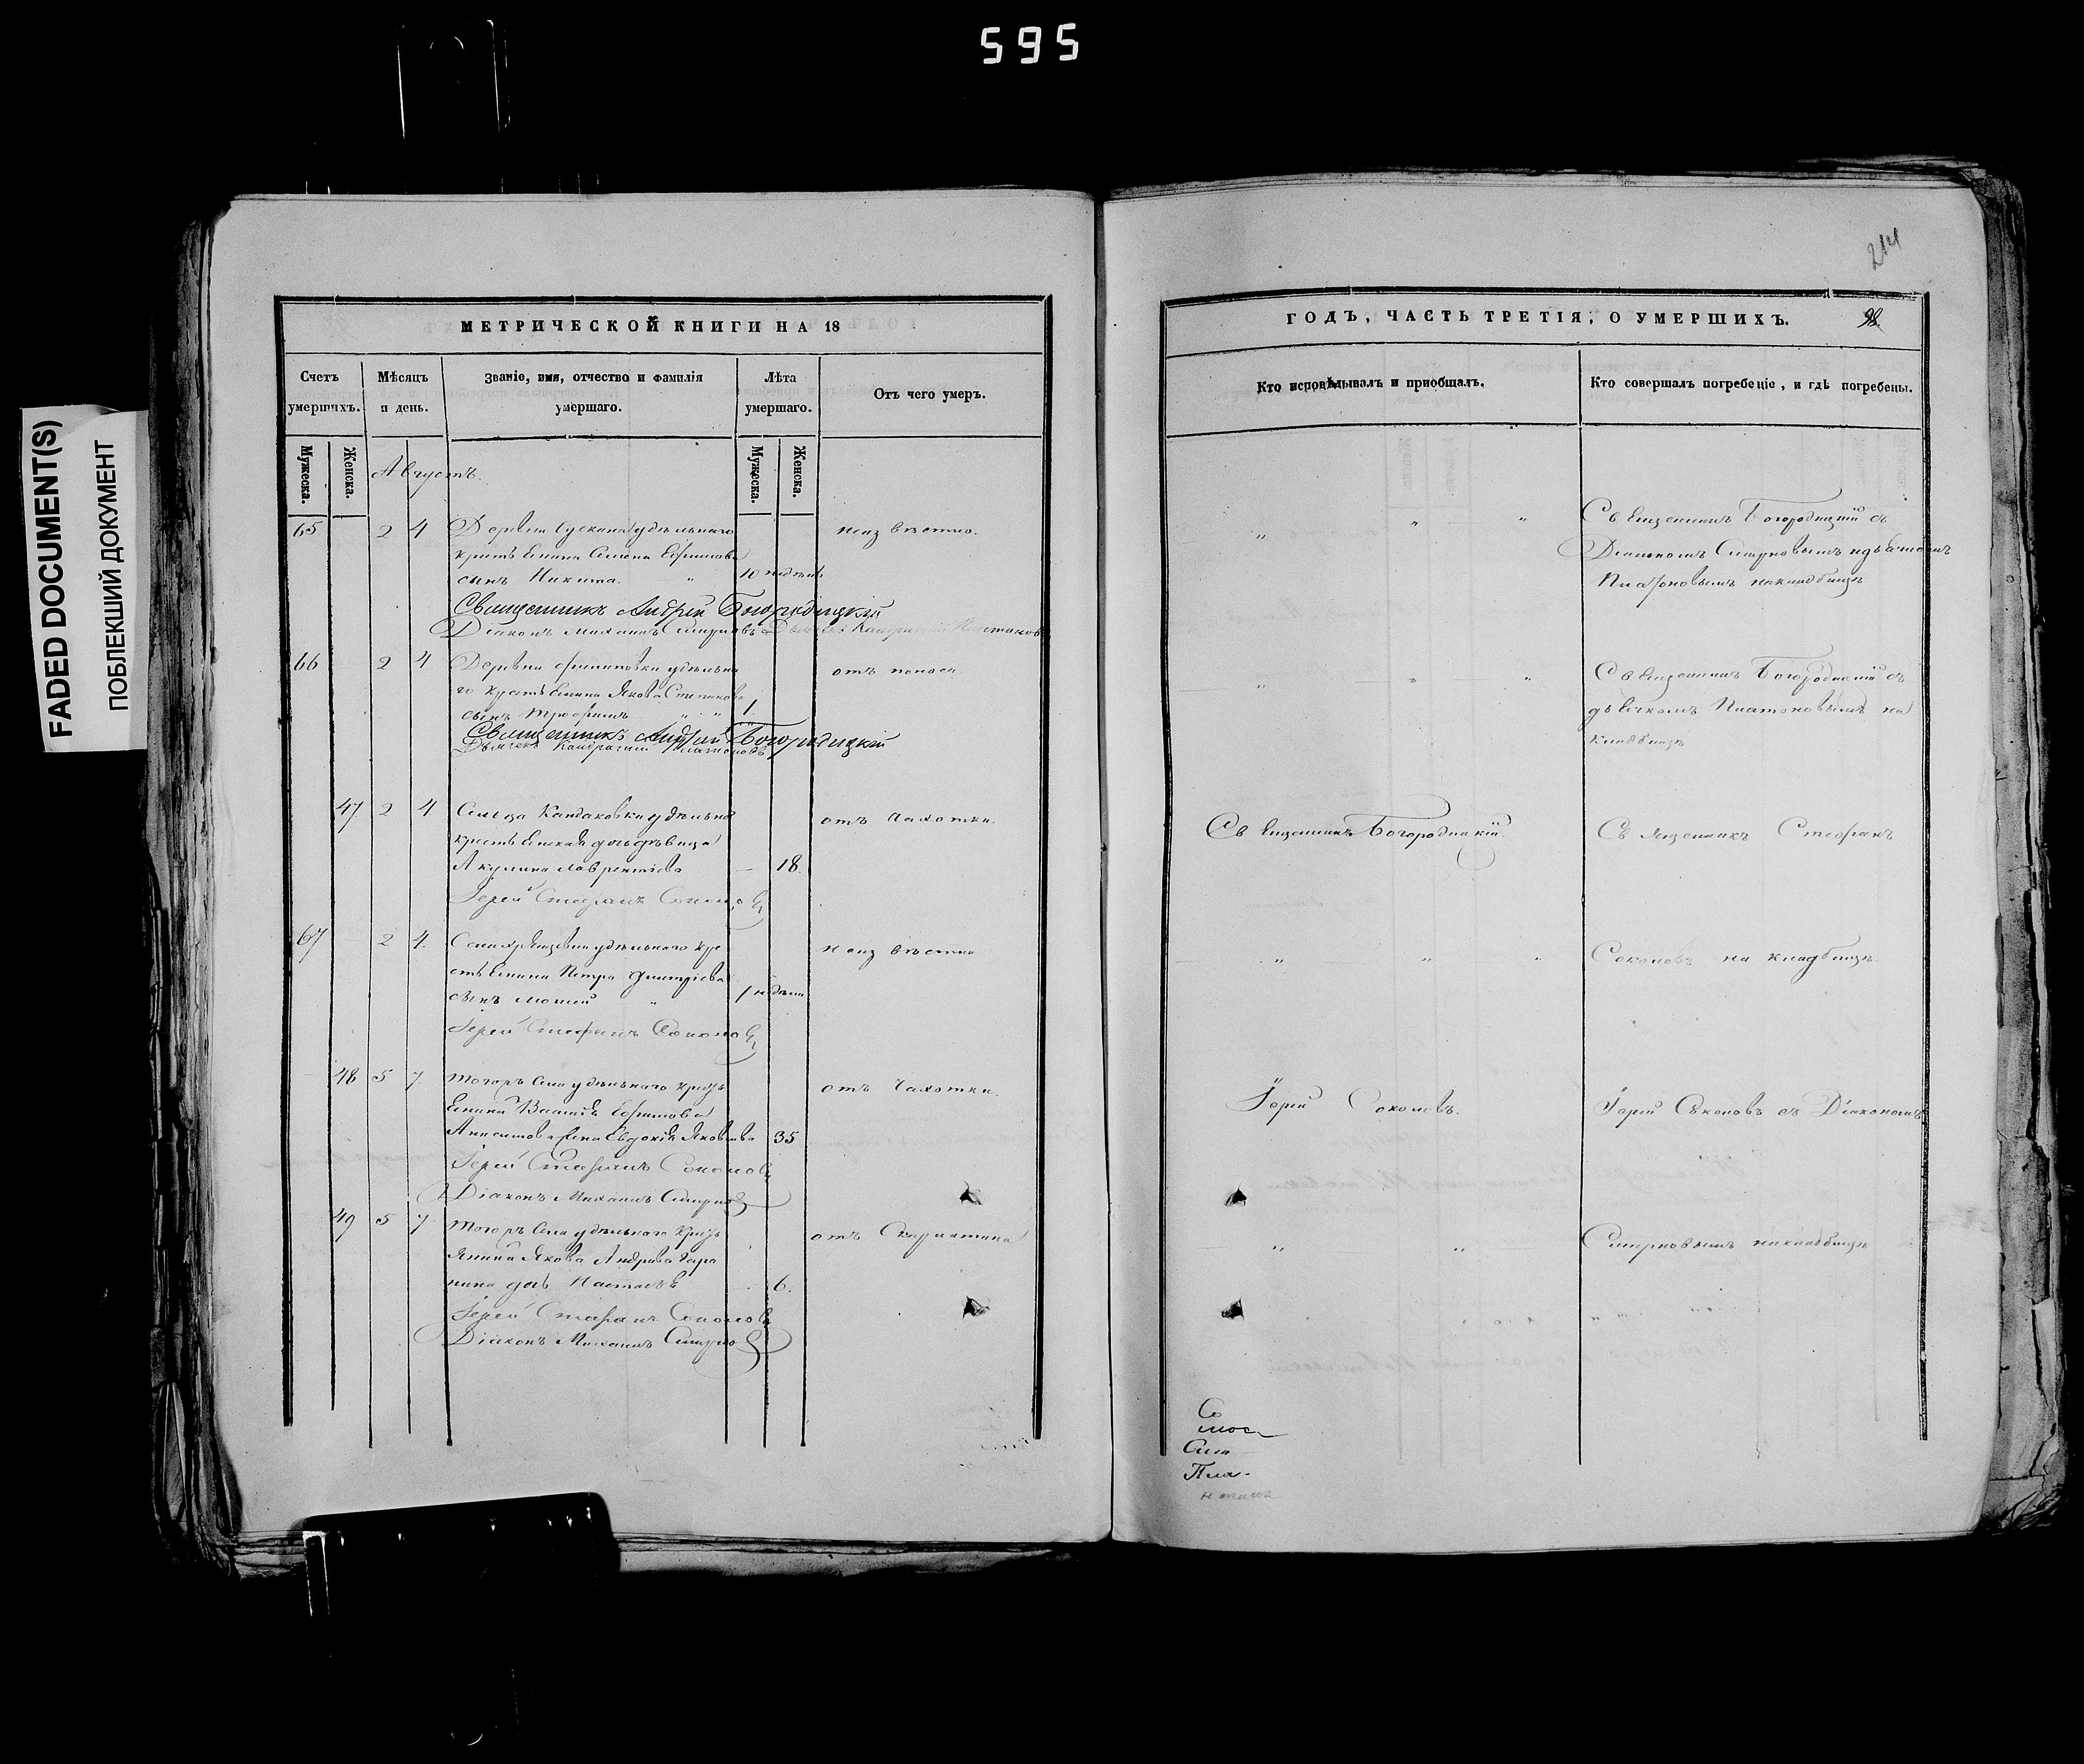 595
FADED DOCUMENT(S)
ПОБЛЕКШИЙ ДОКУМЕНТ
МЕТРИЧЕСКОЙ КНИГИ НА 18
Счетъ умершихъ.
Мѣсяцъ и день.
Званіе, имя, отчество и фамилія умершаго.
Лѣта умершаго.
Отъ чего умеръ.
Мужеска.
Женска.
Мужеска.
Женска.
Августъ.
65 2 4 Деревни удѣльнаго неизвѣстно.
крестьянина Семена Ефимова
сынъ Никита. " 10 недѣль
Священникъ Андрей Богородицкій
Діаконъ Михаилъ Смирновъ Дьячекъ Кандратій Платоновъ
66 2 4 Деревни Филиповки удѣльна отъ поноса.
го крестьянина Якова Степанова
сынъ Трофимъ " " 1.
Священникъ Андрей Богородицкій
Дьячекъ Кандратій Платоновъ
47 2 4 Сельца Кандаковки удѣльна отъ Чахотки.
крестьянская дочь дѣвица
Акулина Лаврентіева — 18.
Іерей Стефанъ Соколовъ
67 2 4. удѣльнаго кре неизвѣстно
стьянина Петра Дмитріева
сынъ Моисей " 1 недѣли
Іерей Стефанъ Соколовъ
48 5 7. Тогожъ Села удѣльнаго кресть отъ Чахотки.
янина Василья Ефимова
Анисимова жена Евдокія Яковлева 35
Іерей Стефанъ Соколовъ
Діаконъ Михаилъ Смирновъ
49 5 7 Тогожъ Села удѣльнаго кресть отъ Скарлатина
янина Якова Андреева Гара
нина дочь Настасья 6.
Іерей Стефанъ Соколовъ
Діаконъ Михаилъ Смирновъ
214
ГОДЪ, ЧАСТЬ ТРЕТІЯ, О УМЕРШИХЪ.
98.
Кто исповѣдывалъ и приобщалъ.
Кто совершалъ погребеніе, и гдѣ погребены.
" " " Священникъ Богородицкій съ
Діакономъ Смирновымъ и дьячкомъ
Платоновымъ на кладбищѣ
" " " Священникъ Богородицкій съ
дьячкомъ Платоновымъ на
кладбищѣ
Священникъ Богородицкій. Священникъ Стефанъ
" " " Соколовъ на кладбищѣ.
Іерей Соколовъ. Іерей Соколовъ съ Діакономъ
" " Смирновымъ на кладбищѣ
Со
Пла-